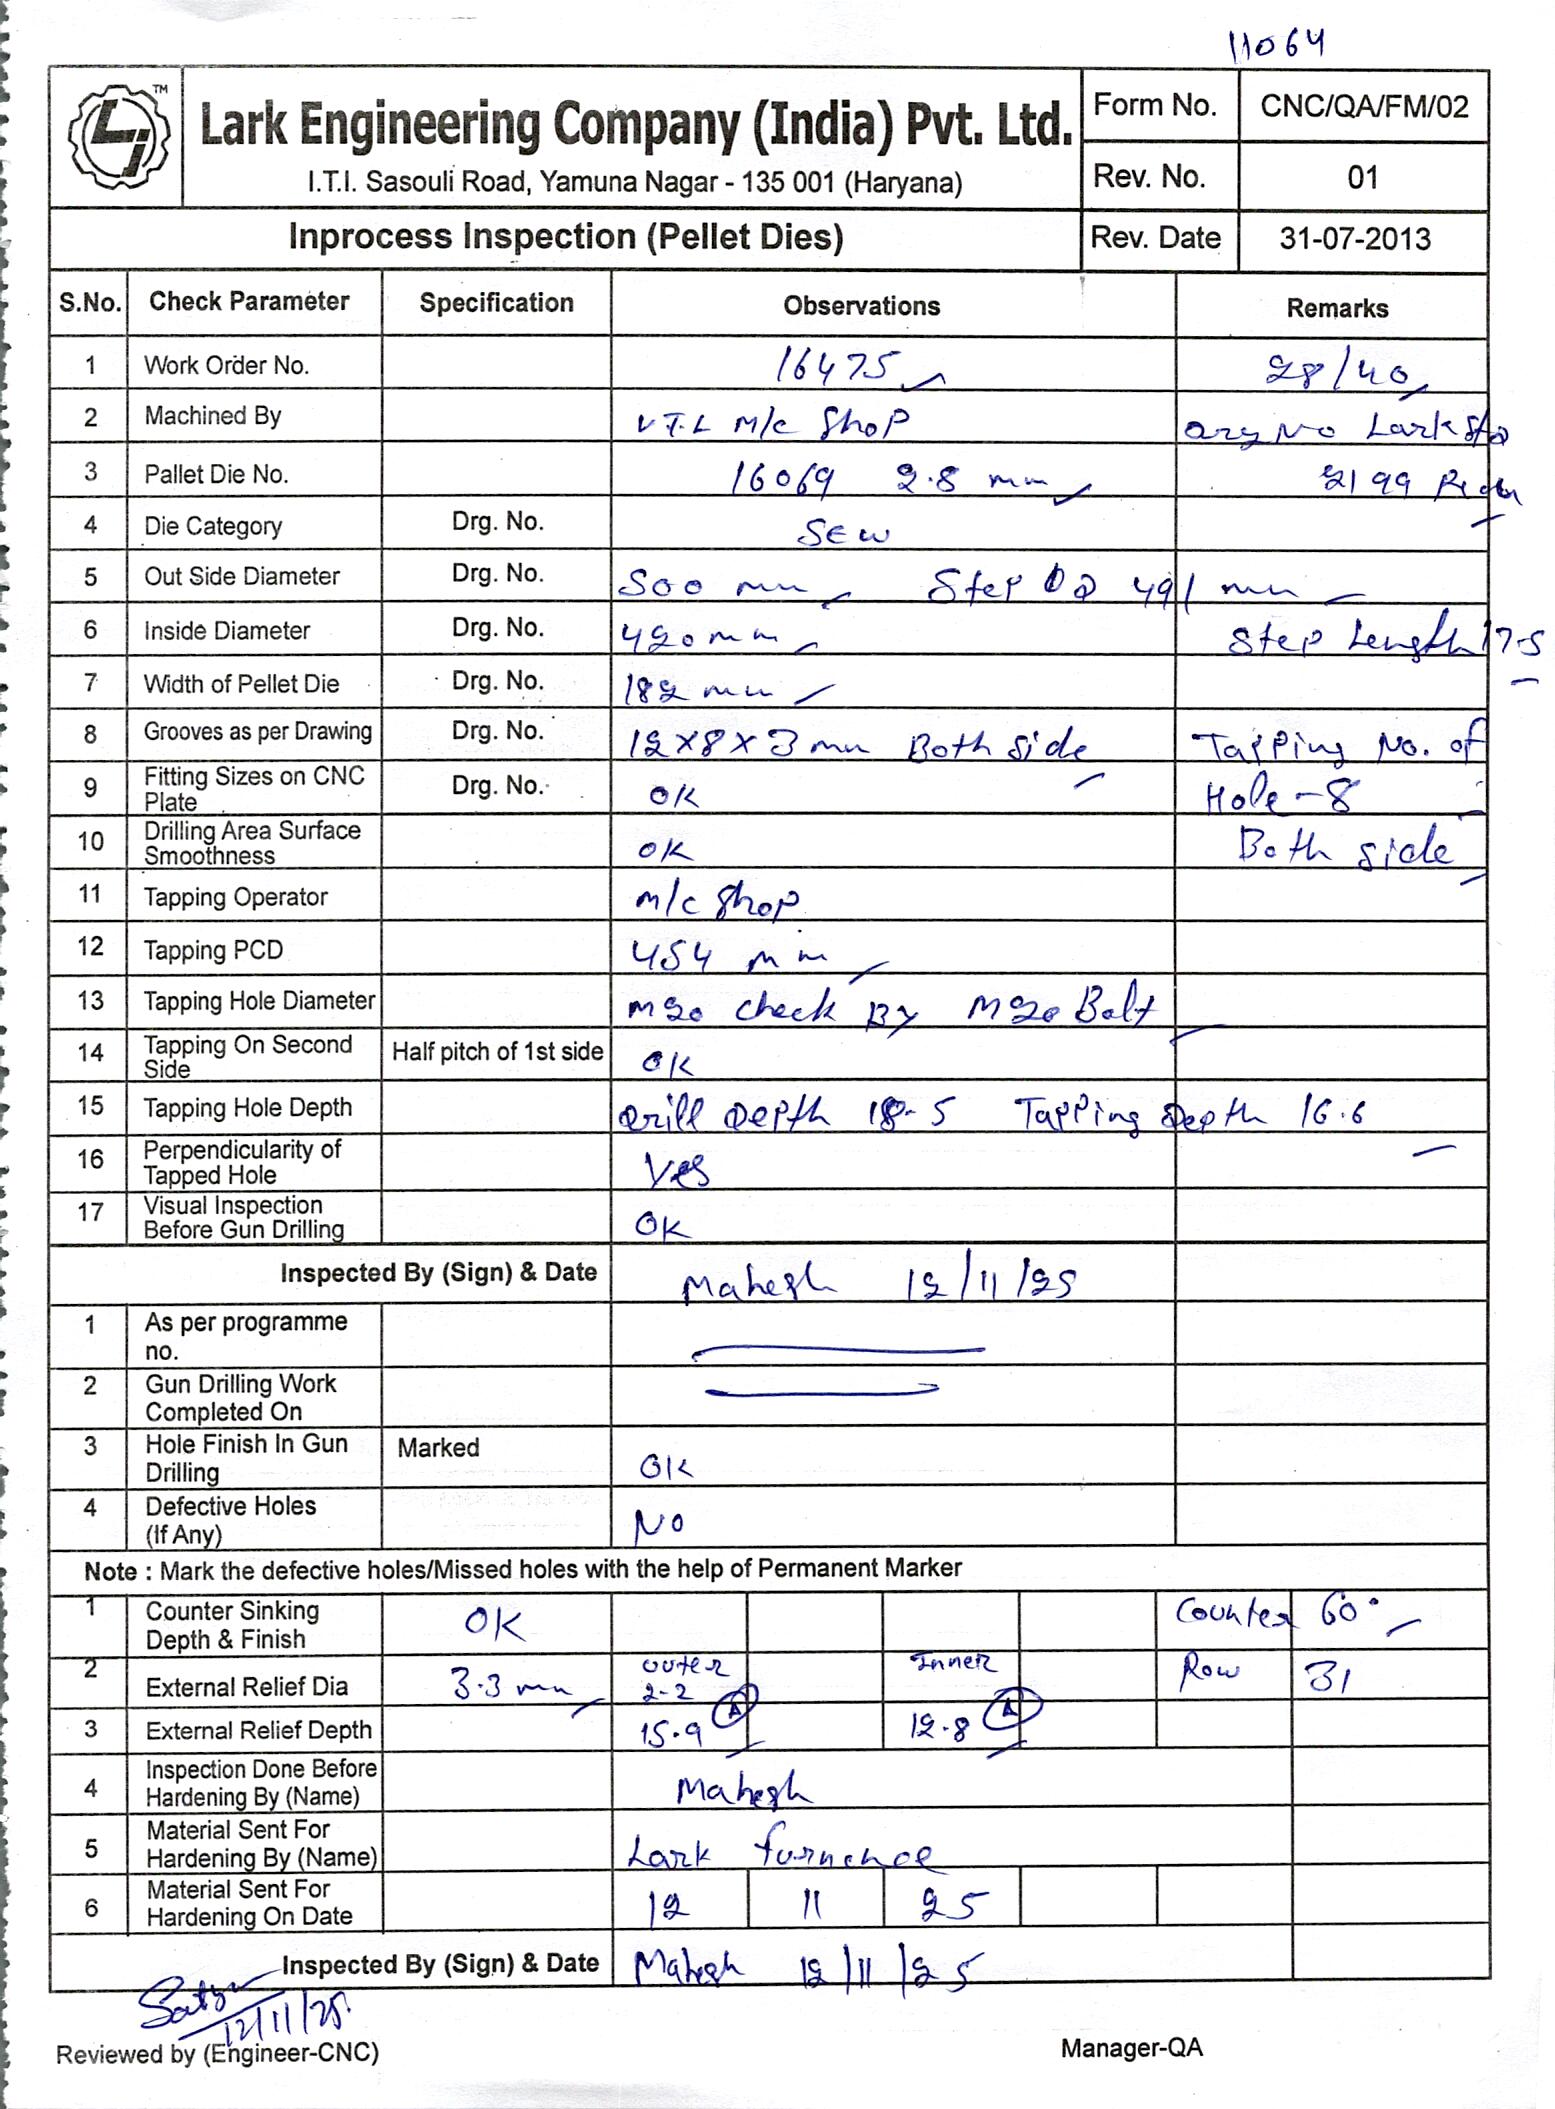 11064
TM
Lark Engineering Company (India) Pvt. Ltd.
I.T.I. Sasouli Road, Yamuna Nagar - 135 001 (Haryana)
Form No. CNC/QA/FM/02
Rev. No. 01
Inprocess Inspection (Pellet Dies) Rev. Date 31-07-2013
S.No. Check Parameter Specification Observations Remarks
1 Work Order No. 16475 28/40
2 Machined By V.T.L M/c Shop Lark
3 Pallet Die No. 16069 2.8 mm 2199
4 Die Category Drg. No. SEW
5 Out Side Diameter Drg. No. 500 mm Step OD 491 mm
6 Inside Diameter Drg. No. 420 mm Step Length 17.5
7 Width of Pellet Die Drg. No. 182 mm
8 Grooves as per Drawing Drg. No. 12×8×3 mm Both side Tapping No. of
9 Fitting Sizes on CNC Plate Drg. No. OK Hole-8
10 Drilling Area Surface Smoothness OK Both side
11 Tapping Operator M/c Shop
12 Tapping PCD 454 mm
13 Tapping Hole Diameter M20 check By M20 Bolt
14 Tapping On Second Side Half pitch of 1st side OK
15 Tapping Hole Depth Drill Depth 18.5 Tapping Depth 16.6
16 Perpendicularity of Tapped Hole Yes
17 Visual Inspection Before Gun Drilling OK
Inspected By (Sign) & Date Mahesh 12/11/25
1 As per programme no.
2 Gun Drilling Work Completed On
3 Hole Finish In Gun Drilling Marked OK
4 Defective Holes (If Any) NO
Note : Mark the defective holes/Missed holes with the help of Permanent Marker
1 Counter Sinking Depth & Finish OK Counter 60°
2 External Relief Dia 3.3 mm outer 2-2 Inner Row 31
3 External Relief Depth 15.9 A 12.8 A
4 Inspection Done Before Hardening By (Name) Mahesh
5 Material Sent For Hardening By (Name) Lark furnence
6 Material Sent For Hardening On Date 12 11 25
Inspected By (Sign) & Date Mahesh 12/11/25
12/11/25.
Reviewed by (Engineer-CNC) Manager-QA